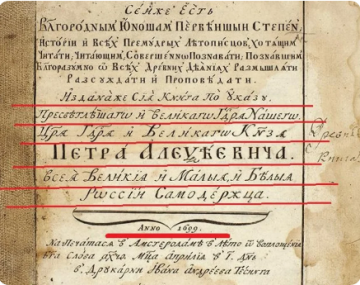 Сей же Есть
Благороднымъ Юношамъ Первѣишыи Степен
Исторіи и Всѣх Премудрых Лѣтописцов, Хотащим
Читати, Читающим, Совершенно Познавати; Познавшим
Благоразумно ѡ Всѣх Древних Дѣаніах Размышлати
Разсуждати и Проповѣдати.
Издана же Сіа Книга По Указу
Пресвѣтлѣшаго и Великаго Гдра Нашего
Цра Гдра и Великаго Кнѕа
Петра Алеѯѣевича.
всеа Великіа и Малыа, и Бѣлыа
Рѡссіи Самодержца.
Anno 1699
Напечатаса в Амстеродамѣ в Лѣто ѿ воплощеніа
бга Слова Мца Априліа в
в Друкарни Ивана Андреева Тесинга